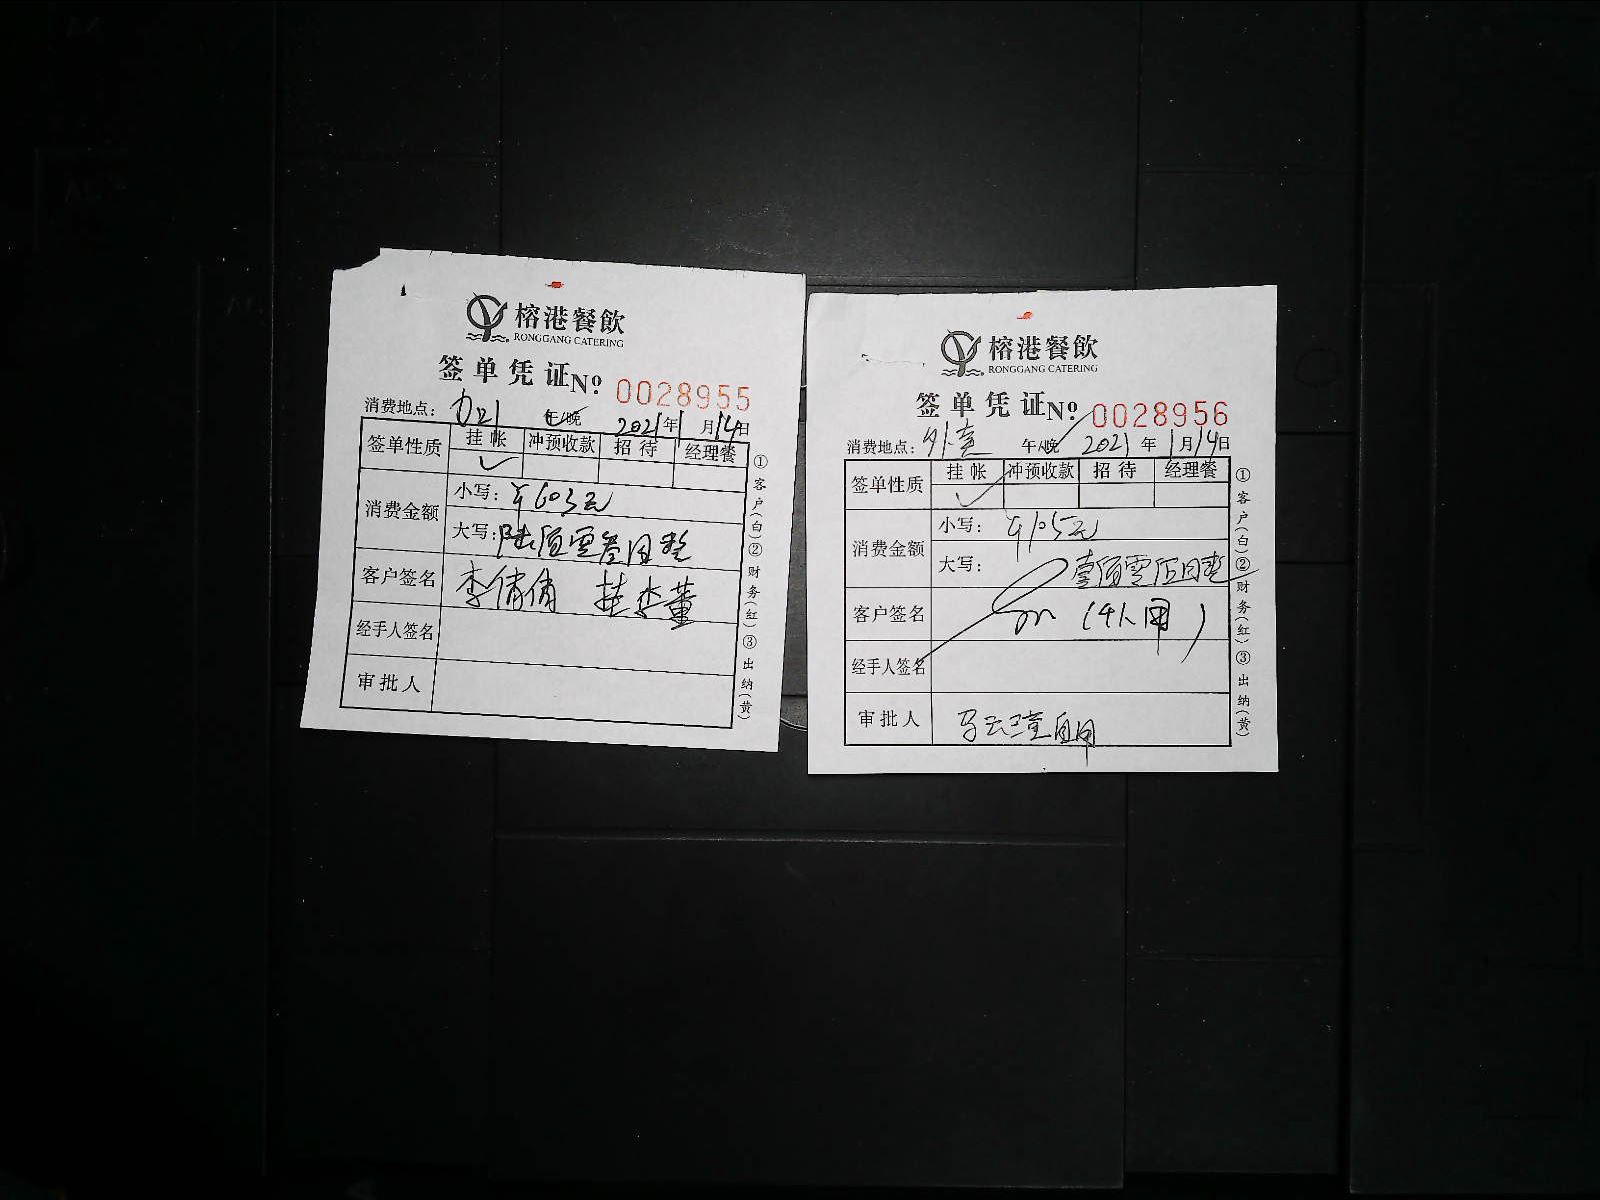 榕港餐飲
RONGGANG CATERING
签单凭证 No 0028955
消费地点: 午/晚 2021年1月14日
签单性质 挂帐 冲预收款 招待 经理餐
✓
消费金额 小写: ¥603元
大写: 陆佰零叁圆整
客户签名 李倩倩 挂李董
经手人签名
审批人
①客户(白)②财务(红)③出纳(黄)
榕港餐飲
RONGGANG CATERING
签单凭证 No 0028956
消费地点: 外 午/晚 2021年1月14日
签单性质 挂帐 冲预收款 招待 经理餐
✓
消费金额 小写: ¥105元
大写: 壹佰零伍圆整
客户签名 (4人用)
经手人签名
审批人
①客户(白)②财务(红)③出纳(黄)